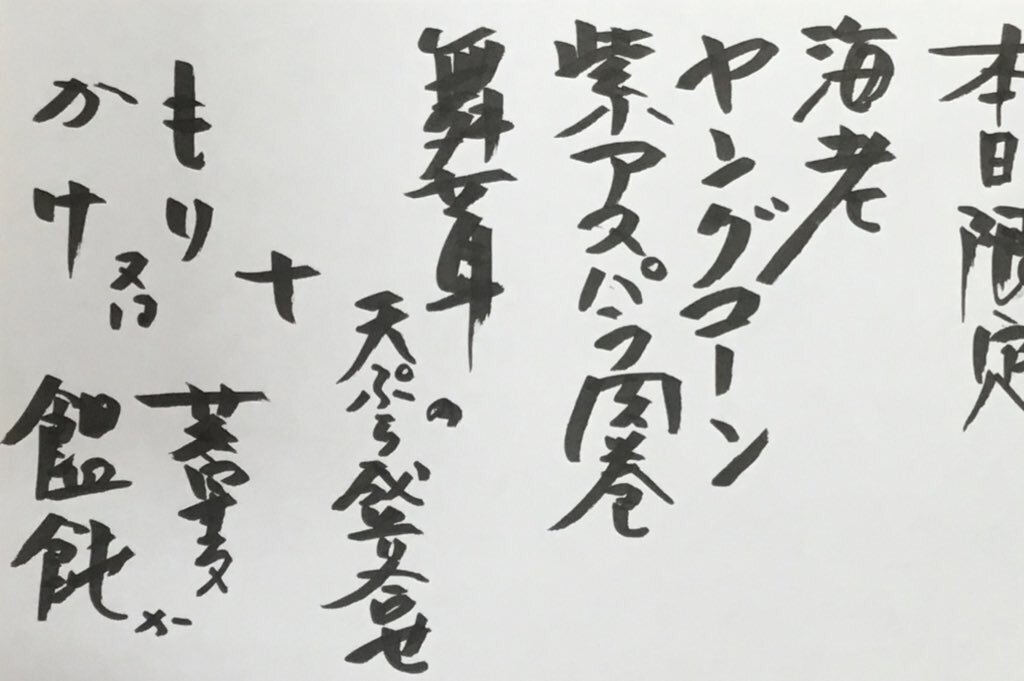 本日限定
海老
ヤングコーン
紫アスパラ肉巻
舞茸
の
天ぷら盛合せ
十
もり
又は
かけ
蕎麦
か
饂飩